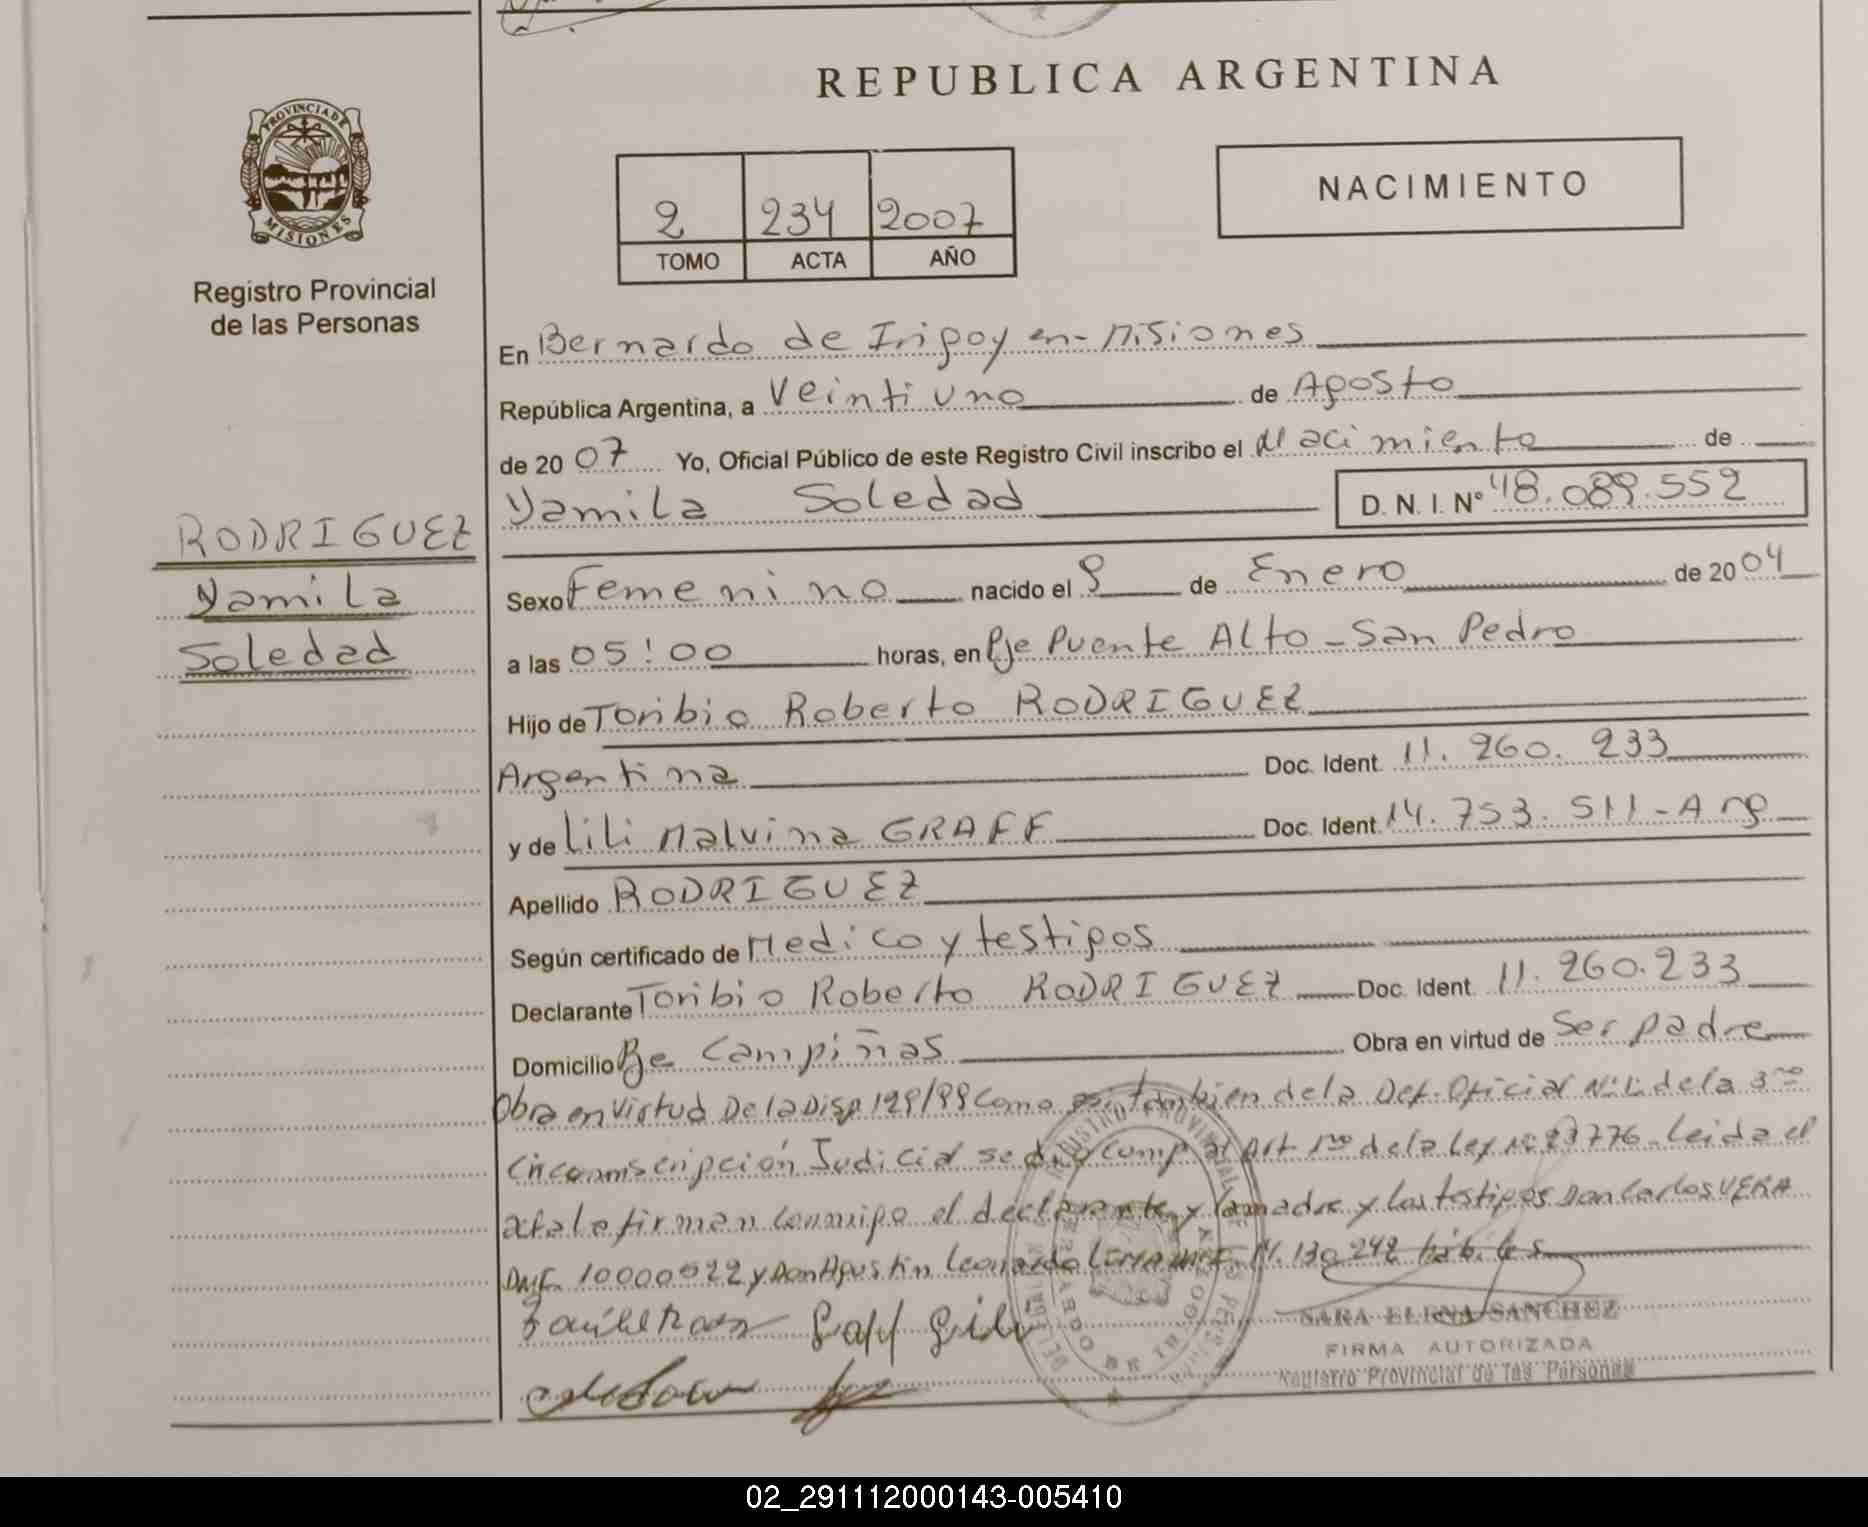 REPUBLICA ARGENTINA
PROVINCIA DE MISIONES
Registro Provincial
de las Personas
NACIMIENTO
2 234 2007
TOMO ACTA AÑO
En Bernardo de Irigoyen - Misiones
República Argentina, a Veintiuno de Agosto
de 2007 Yo, Oficial Público de este Registro Civil inscribo el Nacimiento de
Yamila Soledad D. N. I. Nº 48.089.552
RODRIGUEZ
Yamila
Soledad
Sexo Femenino nacido el 9 de Enero de 2004
a las 05:00 horas, en Pje Puente Alto - San Pedro
Hijo de Toribio Roberto RODRIGUEZ
Argentina Doc. Ident. 11.260.233
y de Lili Malvina GRAFF Doc. Ident. 14.753.511 - Arg
Apellido RODRIGUEZ
Según certificado de Medico y testigos
Declarante Toribio Roberto RODRIGUEZ Doc. Ident. 11.260.233
Domicilio Pje Campiñas Obra en virtud de Ser padre
Obra en virtud De la Disp 129/99 Como tambien de la Def. Oficial Nº 1 de la 3ra
Circunscripción Judicial se dio comp al Art 1ro de la Ley Nº Leida el
acta le firman conmigo el declarante y la madre y los testigos Don Carlos VERA
10000022 y Don Agustin Leonardo habiles
SARA ELENA SANCHEZ
FIRMA AUTORIZADA
Registro Provincial de las Personas
02_291112000143-005410